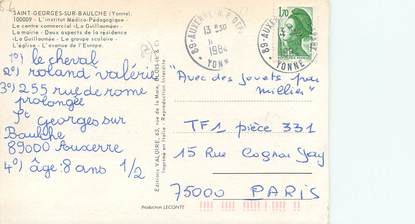 SAINT-GEORGES-SUR-BAULCHE (Yonne)
100009 - L'institut Médico-Pédagogique -
Le centre commercial «La Guillaumée»
La mairie - Deux aspects de la résidence
«La Guillaumée - Le groupe scolaire -
L'église - L'avenue de l'Europe.
1º) le cheval
2º) roland valérie
3º) 255 rue de rome
prolongée
St Georges sur
Baulche
89000 Auxerre
4º) âge: 8 ans 1/2
Reproduction interdite
Imprimé en Italie
Editions VALOIRE, 63, rue de la Mare, BLOIS
Production LECONTE
13 H
1984
89 - AUXERRE
YONNE
1,70
"Avec des jouets par
millier"
TF1 pièce 331
15 Rue Cognac Jay
75000 PARIS